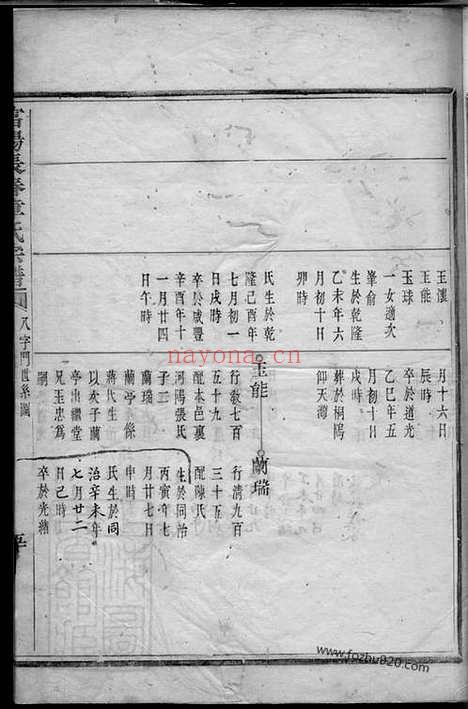 玉濃
玉能
玉球
一女適次
峯俞
生於乾隆
乙未年六
月初十日
卯時
氏生於乾
隆己酉年
七月初一
日戌時
卒於咸豐
辛酉年十
一月廿四
日午時
月十六日
辰時
卒於道光
乙巳年五
月初十日
戌時
葬於桐隖
仰天灣
玉能
行敬七百
五十九
配本邑裏
河陽張氏
子三
蘭瑞
蘭亭 條
蔣氏生
以次子蘭
亭出繼堂
兄玉忠為
嗣
蘭瑞
行清九百
三十五
配陳氏
生於同治
丙寅年七
月廿七日
申時
氏生於同
治辛未年
七月廿二
日巳時
卒於光緒
富陽長春章氏宗譜
八字門世系圖
nayona.cn
www.fozhu920.com